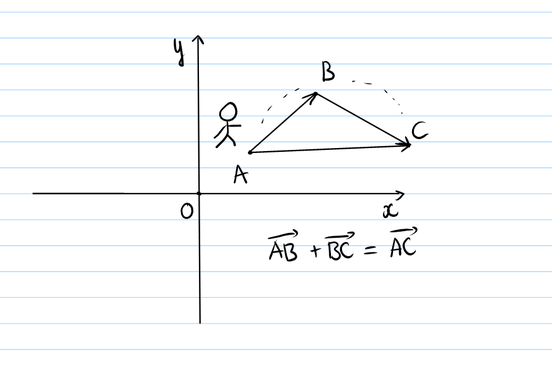 y
B
C
A
O
x
$\overrightarrow{AB} + \overrightarrow{BC} = \overrightarrow{AC}$